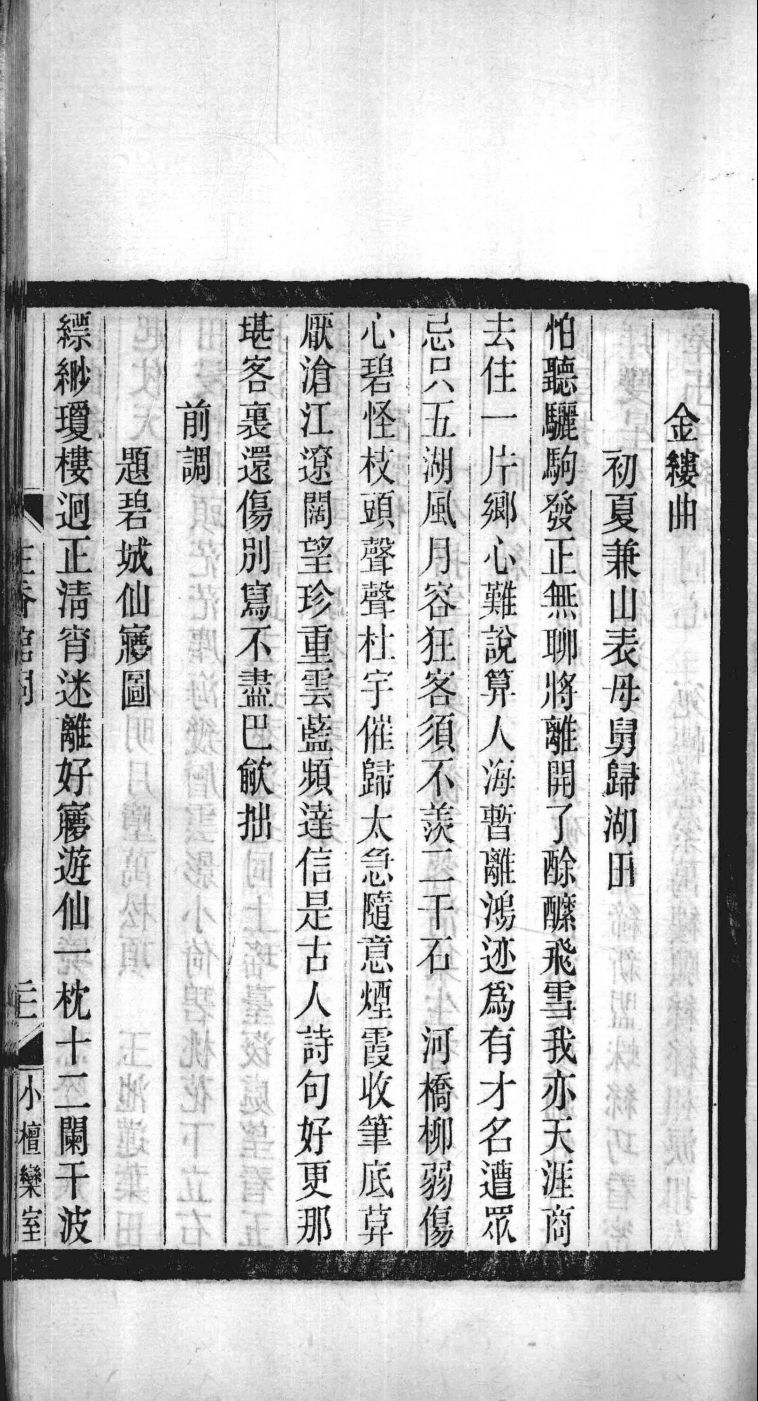 金縷曲
初夏兼山表母舅歸湖田
怕聽驪駒發正無聊將離開了酴醾飛雪我亦天涯商
去住一片鄉心難說算人海暫離鴻迹爲有才名遭眾
忌只五湖風月容狂客須不羨二千石　河橋柳弱傷
心碧怪枝頭聲聲杜宇催歸太急隨意煙霞收筆底莫
厭滄江遼闊望珍重雲藍頻達信是古人詩句好更那
堪客裏還傷別寫不盡巴歈拙
前調
題碧城仙㝱圖
縹緲瓊樓迥正清宵迷離好㝱遊仙一枕十二闌干波
香館詞
二
小檀欒室